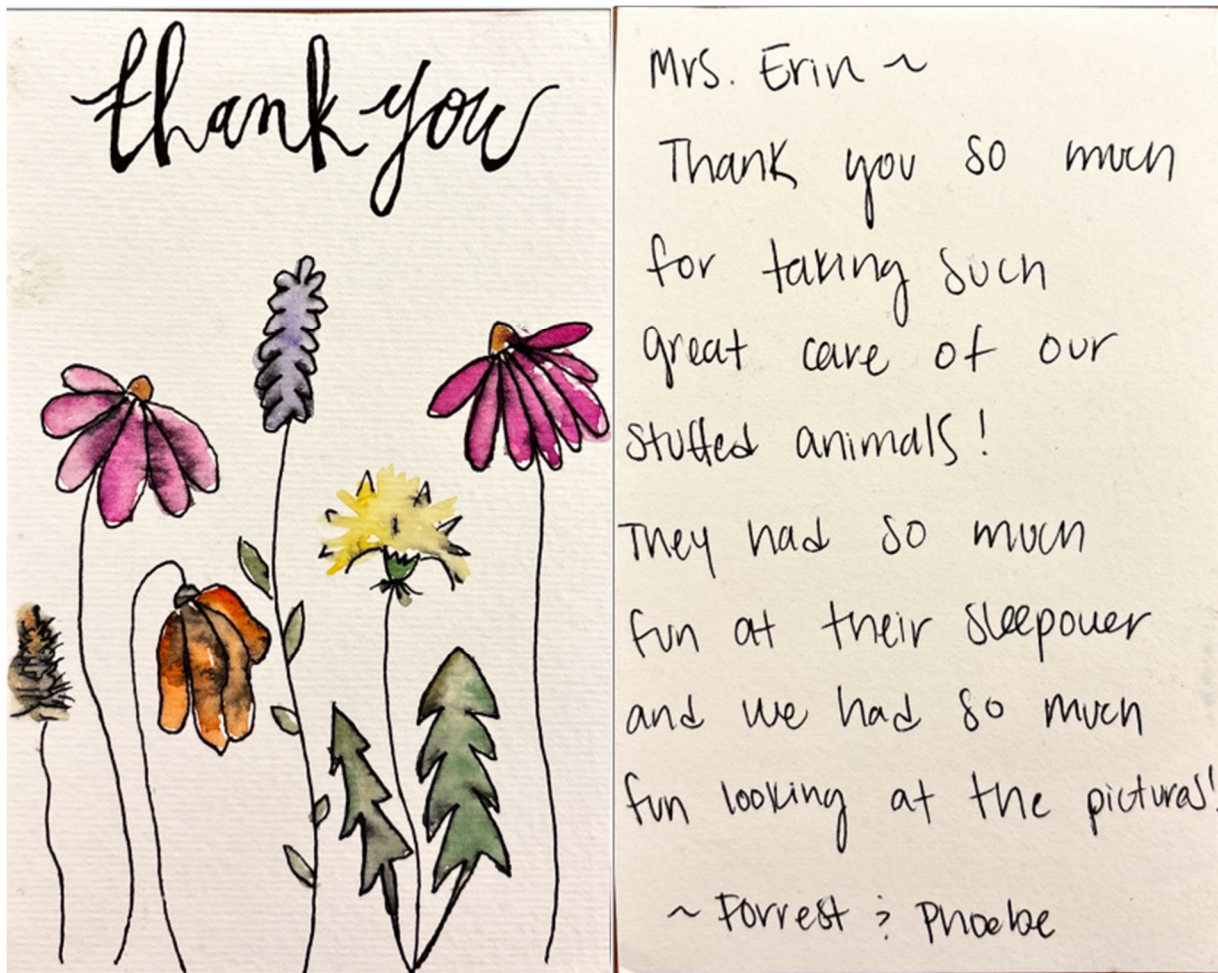 thank you
Mrs. Erin ~
Thank you so much
for taking such
great care of our
stuffed animals!
They had so much
fun at their sleepover
and we had so much
fun looking at the pictures!
~ Forrest & Phoebe